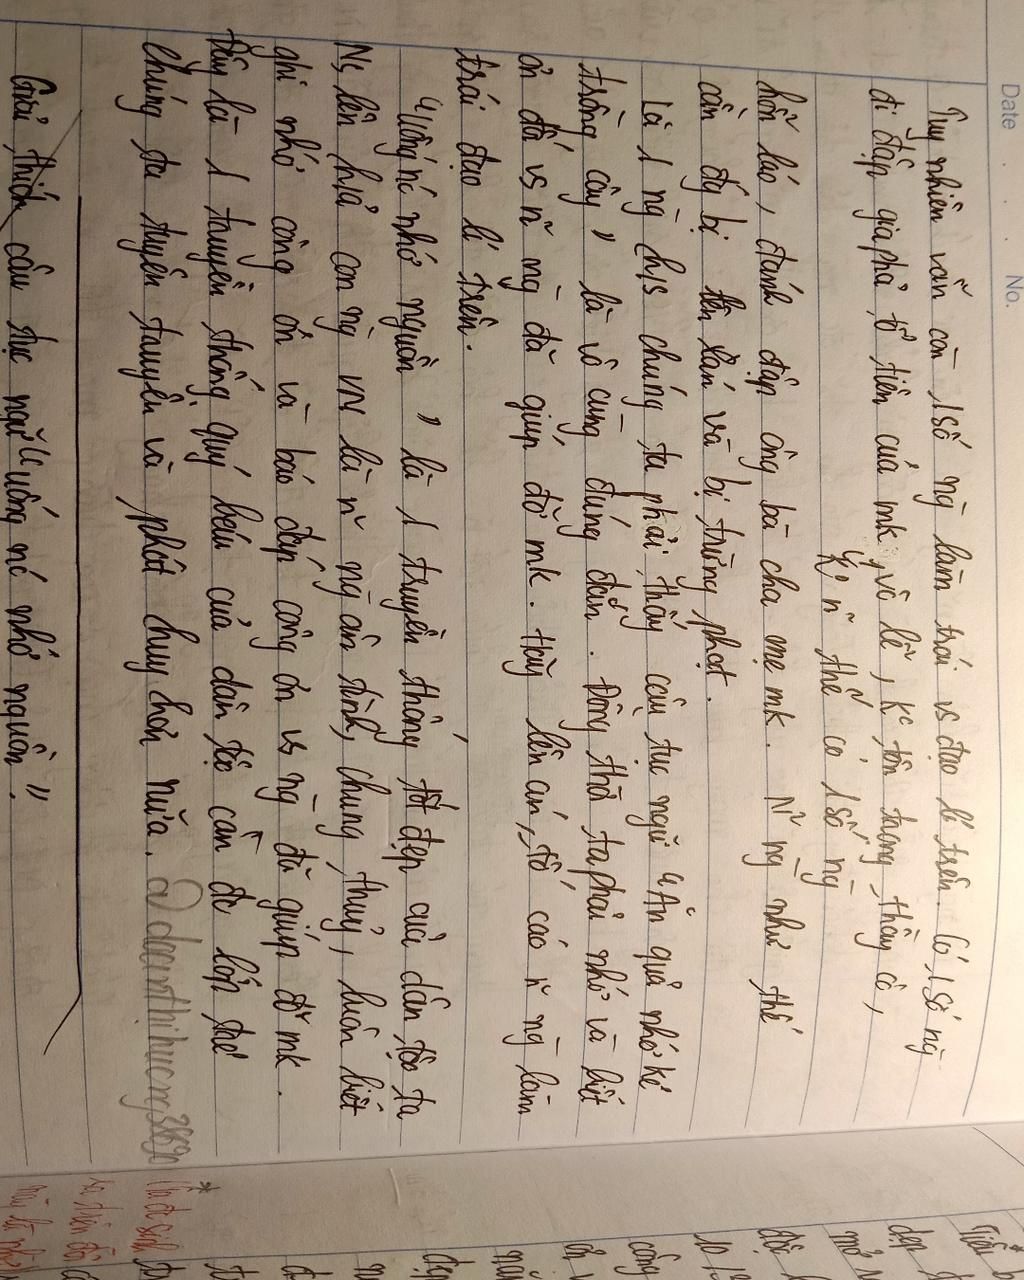 Date
No.
Tuy nhiên vẫn còn 1 số ng̀ làm trái vs đạo lí trên. Có 1 số ng̀
đi đập gia phả, tổ tiên của mk, vô lễ, k° tôn trọng thầy cô,
K° n~ thế có 1 số ng̀
hỗn láo, đánh đập ông bà cha mẹ mk. N~ ng̀ như thế
cần đc bị lên án và bị trừng phạt.
Là 1 ng̀ h/s chúng ta phải thấy câu tục ngữ "Ăn quả nhớ kẻ
trồng cây" là vô cùng đúng đắn. Đồng thời ta phải nhớ và biết
ơn đối vs n~ ng̀ đã giúp đỡ mk. Hãy lên án, tố cáo n~ ng̀ làm
trái đạo lí trên.
"Uống nc nhớ nguồn" là 1 truyền thống tốt đẹp của dân tộc ta
con ng̀ VN là n~ ng̀ ân tình, chung thuỷ, luôn biết
ghi nhớ công ơn và báo đáp công ơn vs ng̀ đã giúp đỡ mk.
Đây là 1 truyền thống quý báu của dân tộc cần đc lớp thế
chúng ta tuyên truyền và phát huy hơn nữa. @doanthihuong38690
Giải thích câu tục ngữ "uống nc nhớ nguồn".